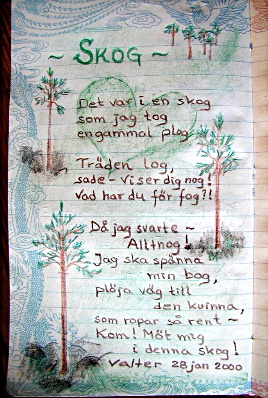 ~ SKOG ~
Det var i en skog
som jag tog
en gammal plog
Träden log,
sade - Vi ser dig nog!
Vad har du för fog?!!
Då jag svarte ~
Alltnog!
Jag ska spänna
min bog,
plöja väg till
den kvinna,
som ropar så rent ~
Kom! Möt mig
i denna skog!
Valter 28 jan 2000